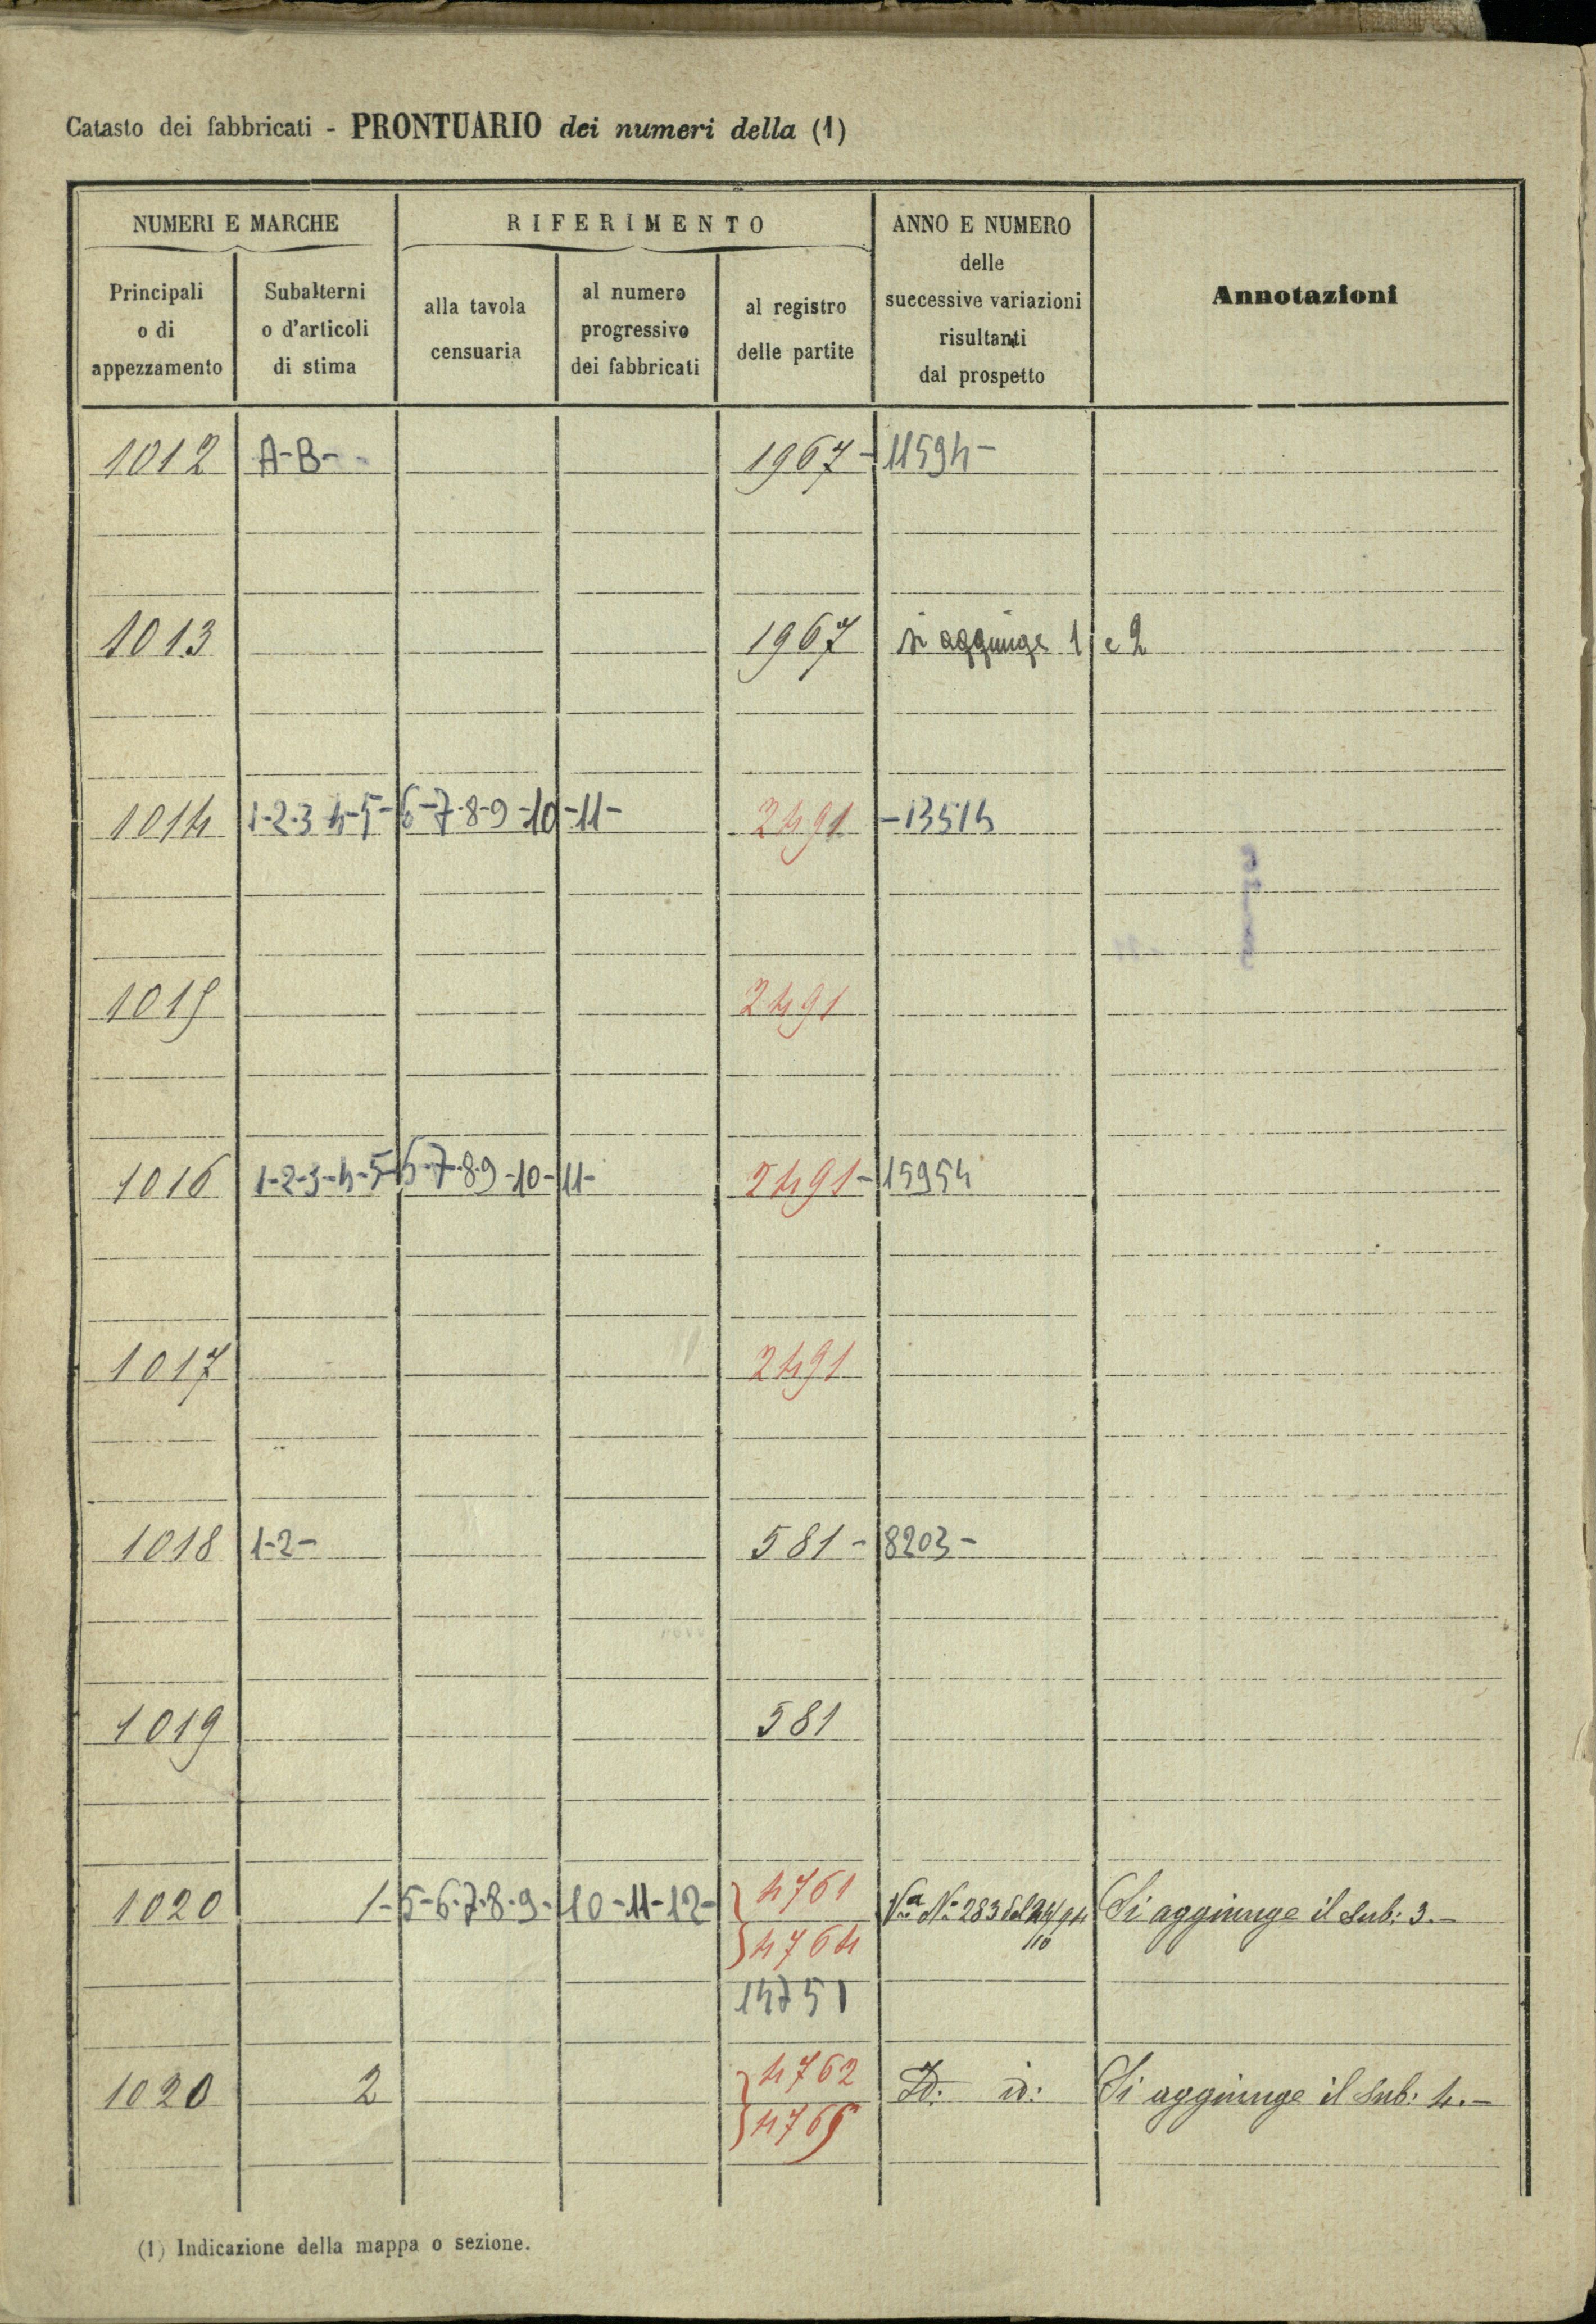 Catasto dei fabbricati - PRONTUARIO dei numeri della (1)
NUMERI E MARCHE
RIFERIMENTO
ANNO E NUMERO
delle
successive variazioni
risultanti
dal prospetto
Annotazioni
Principali
o di
appezzamento
Subalterni
o d'articoli
di stima
alla tavola
censuaria
al numero
progressivo
dei fabbricati
al registro
delle partite
1012 A-B- 1967- 11594-
1013 1967 si aggiunge 1 e 2
1014 1-2-3-4-5-6-7-8-9-10-11- 2491 -13514
1015 2491
1016 1-2-3-4-5-6-7-8-9-10-11- 2491- 15954
1017 2491
1018 1-2- 581- 8203-
1019 581
1020 1-5-6-7-8-9-10-11-12- 4761 Si aggiunge il sub: 3.-
4764
14751
1020 2 4762 Id. id: Si aggiunge il sub: 4.-
4765
(1) Indicazione della mappa o sezione.